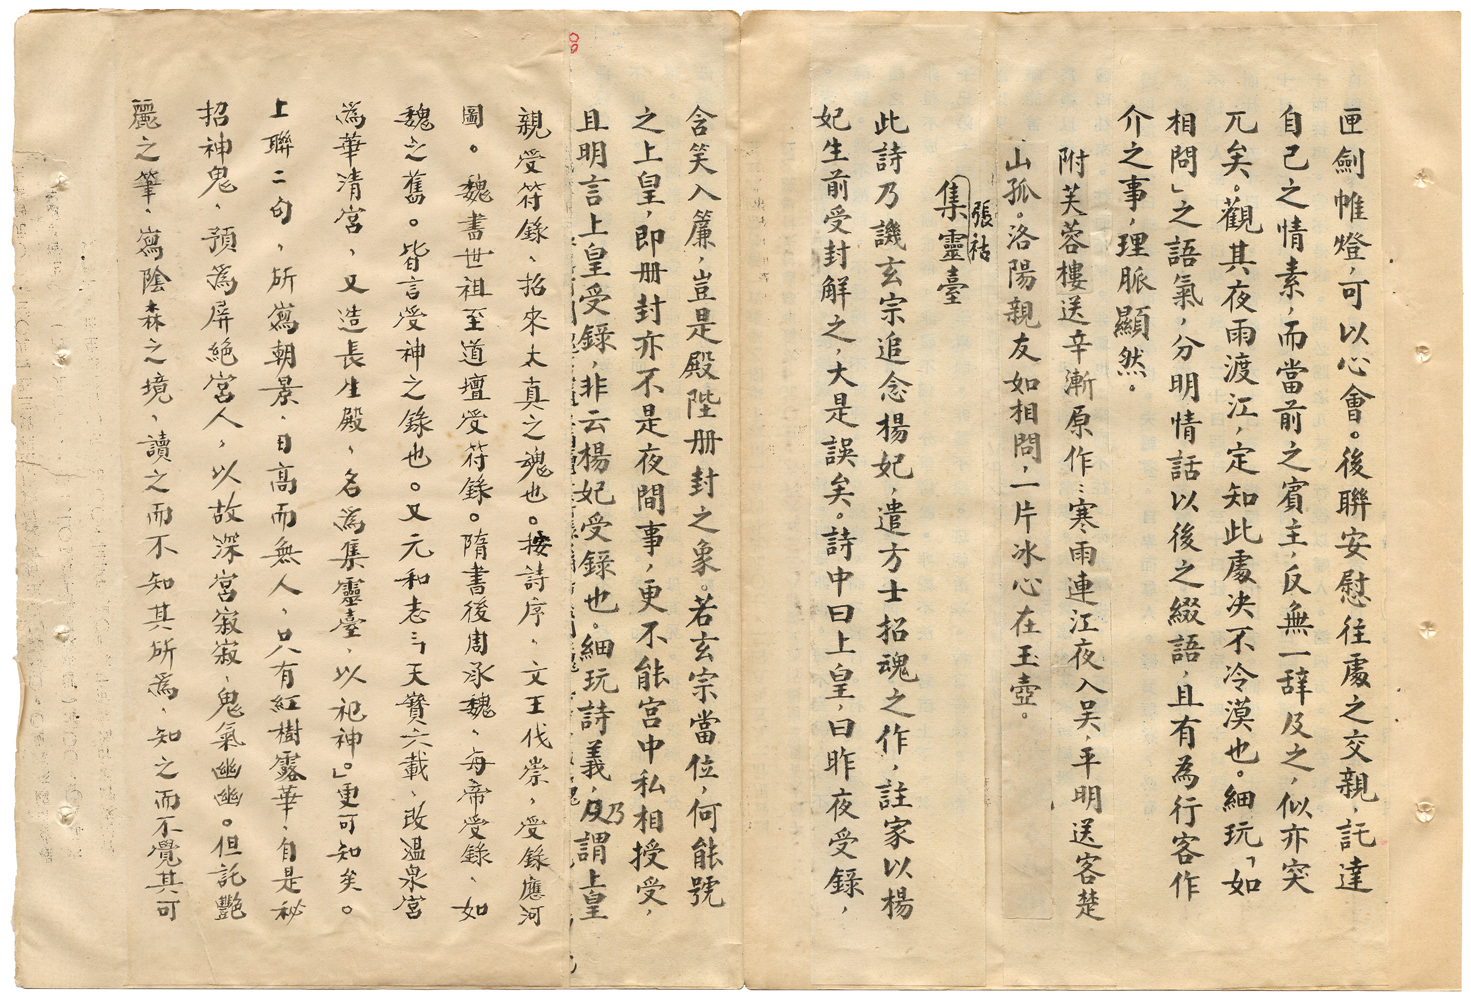 匣劍帷燈，可以心會。後聯安慰往處之交親，託達
自己之情素，而當前之賓主，反無一辭及之，似亦突
兀矣。觀其夜雨渡江，定知此處决不冷漠也。細玩「如
相問」之語氣，分明情話以後之綴語，且有為行客作
介之事，理脈顯然。
附芙蓉樓送辛漸原作：寒雨連江夜入吳，平明送客楚
山孤。洛陽親友如相問，一片冰心在玉壺。
張祜
集靈臺
此詩乃譏玄宗追念楊妃，遣方士招魂之作，註家以楊
妃生前受封解之，大是誤矣。詩中曰上皇，曰昨夜受錄，
含笑入簾，豈是殿陛册封之象。若玄宗當位，何能號
之上皇，即册封亦不是夜間事，更不能宮中私相授受，
且明言上皇受錄，非云楊妃受錄也。細玩詩義，乃謂上皇
親受符錄、招來太真之魂也。按詩序、文王伐崇，受錄應河
圖。魏書世祖至道壇受符錄。隋書後周承魏、每帝受錄、如
魏之舊。皆言受神之錄也。又元和志云天寶六載、改温泉宮
為華清宮，又造長生殿，名為集靈臺，以祀神。」更可知矣。
上聯二句，所寫朝景，日高而無人，只有紅樹露華，自是祕
招神鬼、預為屏絶宮人，以故深宮寂寂，鬼氣幽幽。但託艷
麗之筆，寫陰森之境，讀之而不知其所為，知之而不覺其可